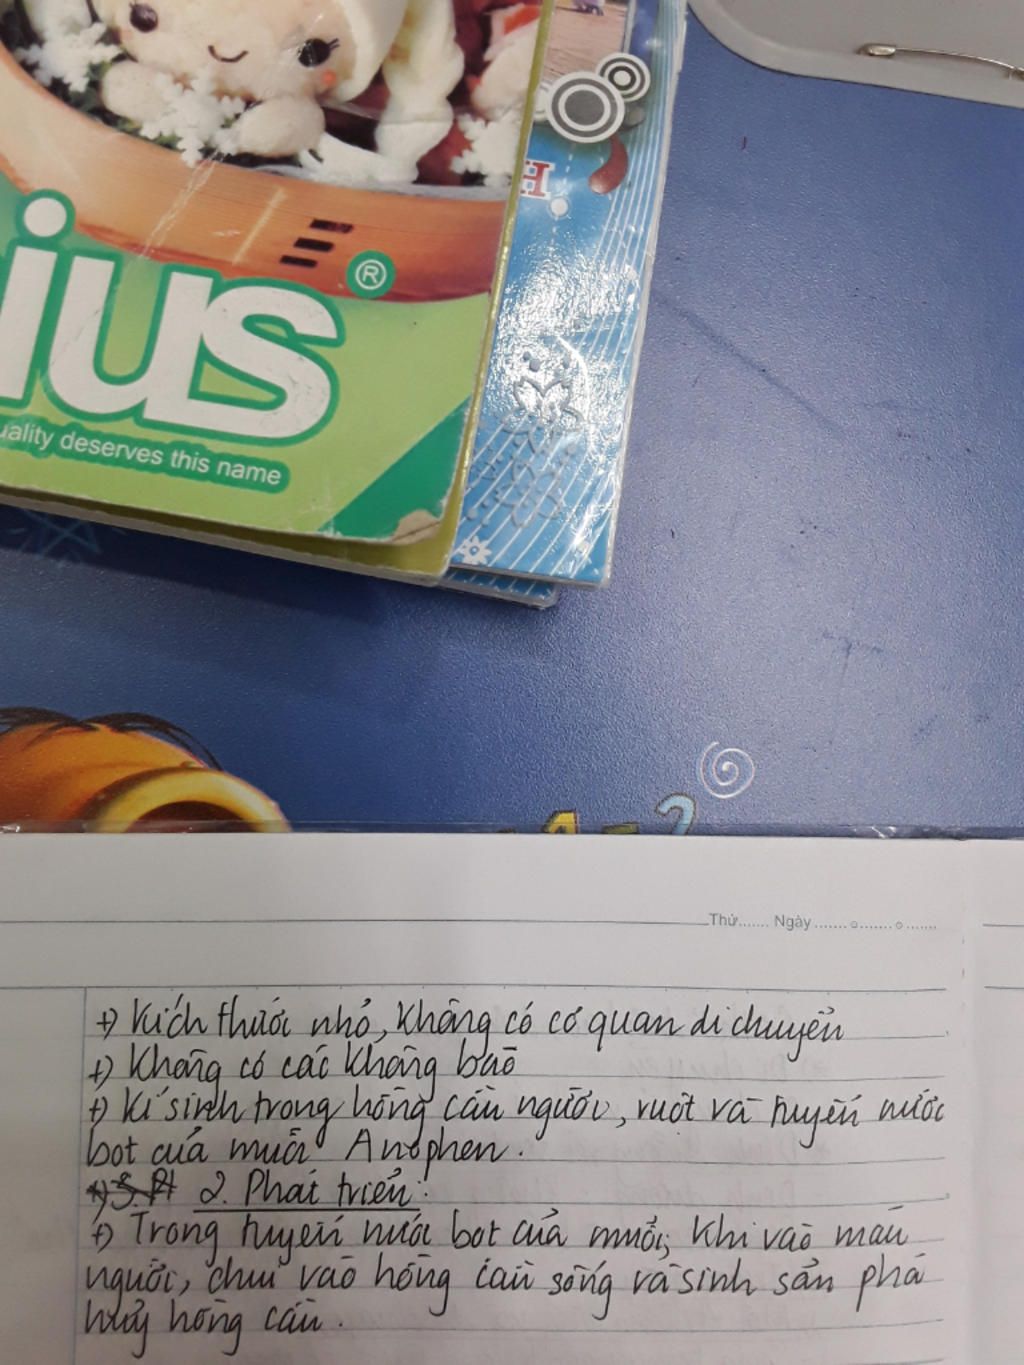 H
ius®
uality deserves this name
1 = 2
Thứ....... Ngày .......
+) Kích thước nhỏ, không có cơ quan di chuyển
+) Không có các không bào
+) Kí sinh trong hồng cầu người, ruột và tuyến nước
bọt của muỗi Anophen.
2. Phát triển:
+) Trong tuyến nước bọt của muỗi, khi vào máu
người, chui vào hồng cầu sống và sinh sản phá
huỷ hồng cầu.